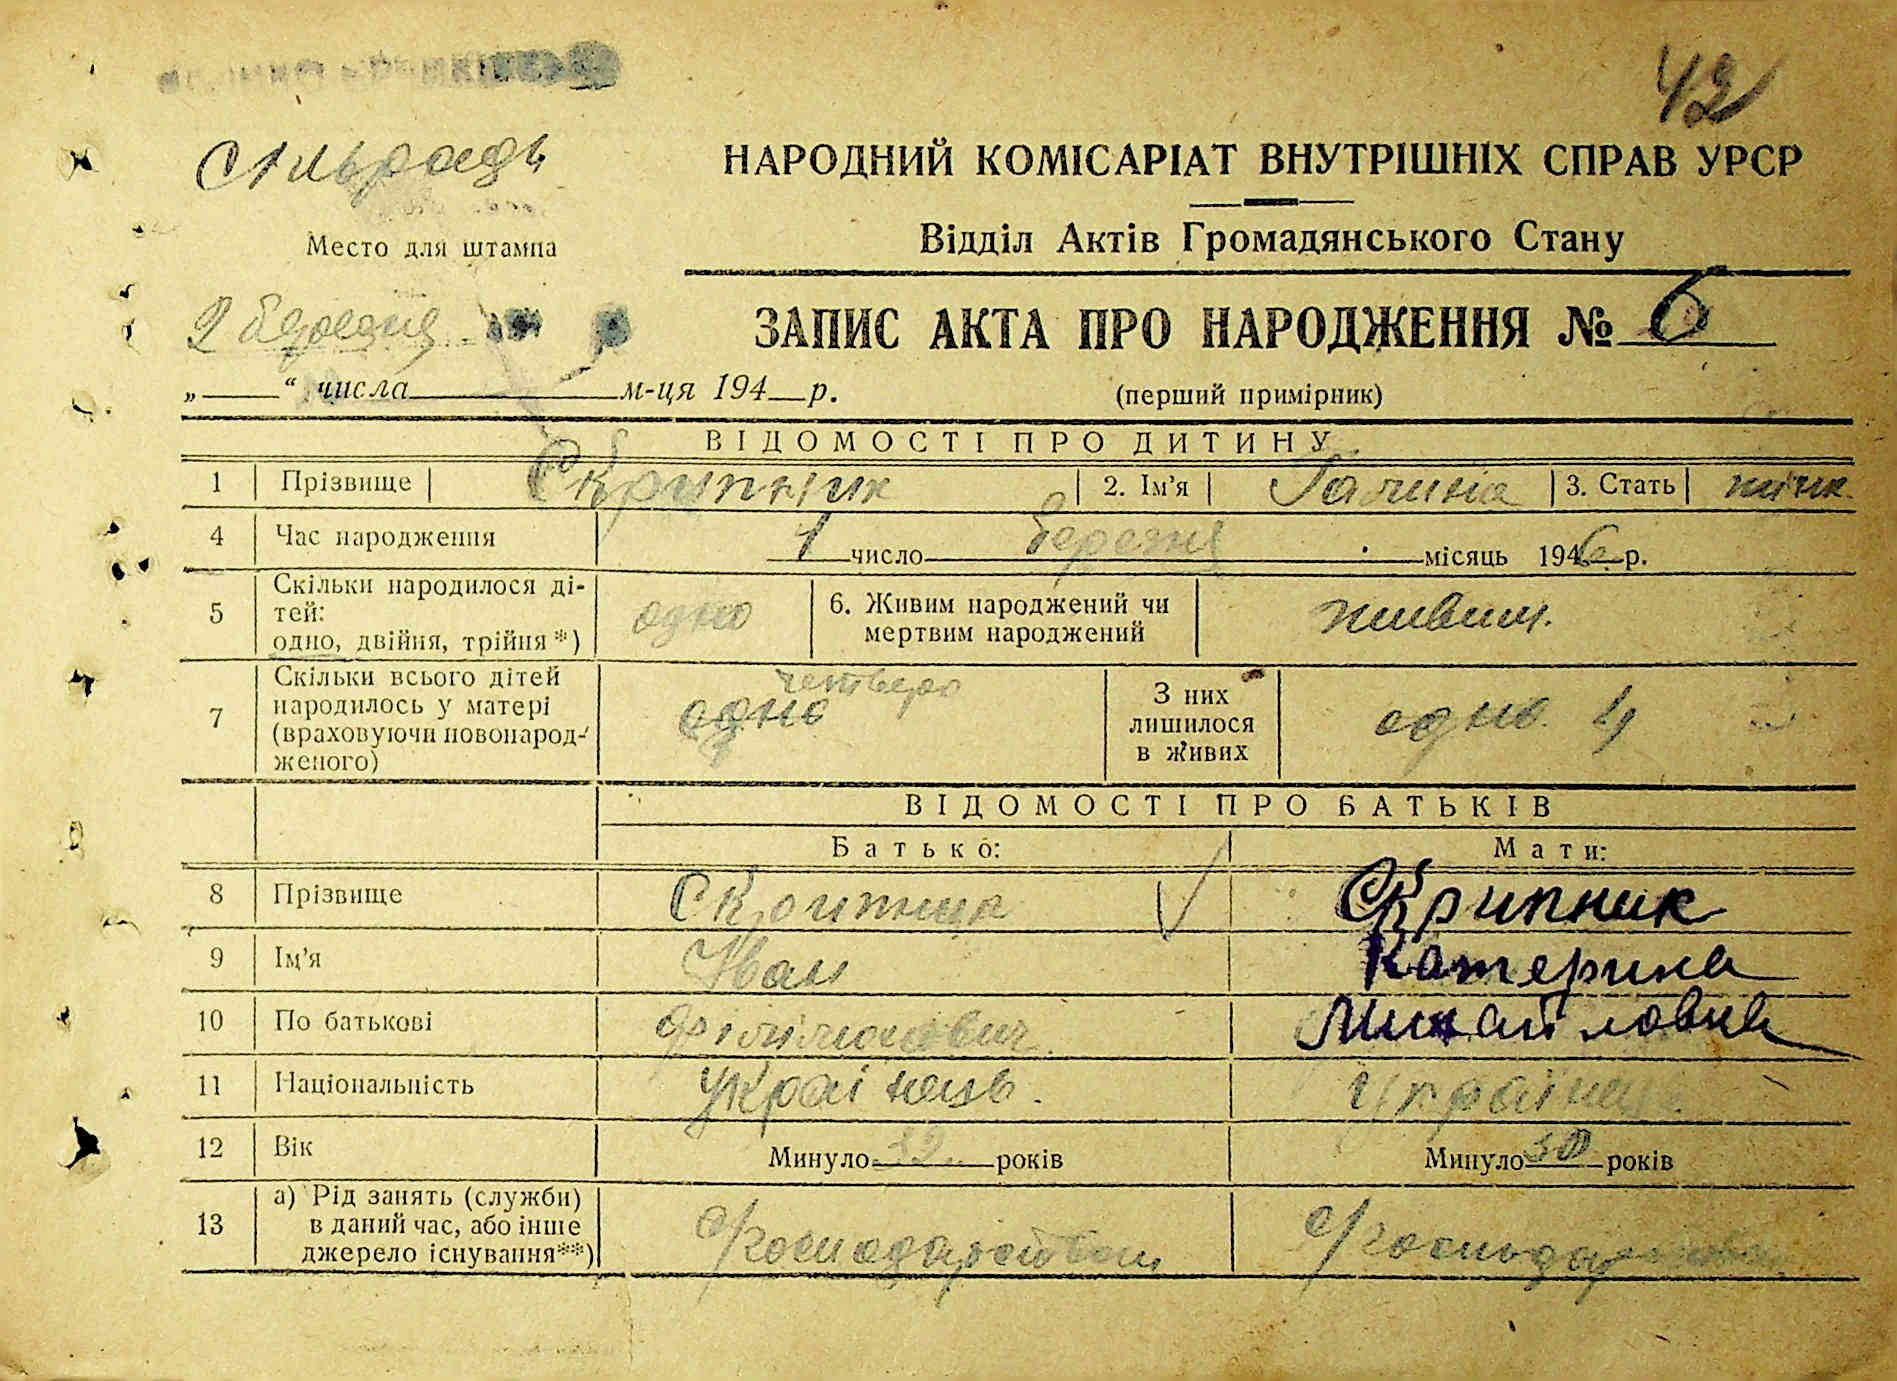 42
Сільрада
НАРОДНИЙ КОМІСАРІАТ ВНУТРІШНІХ СПРАВ УРСР
Место для штампа
Відділ Актів Громадянського Стану
2 березня
ЗАПИС АКТА ПРО НАРОДЖЕННЯ № 6
„ “ числа м-ця 194 р.
(перший примірник)
ВІДОМОСТІ ПРО ДИТИНУ
1 Прізвище Скрипник 2. Ім'я Галина 3. Стать жіноч.
4 Час народження 1 число березня місяць 1946 р.
5 Скільки народилося ді-
тей:
одно, двійня, трійня*) одно 6. Живим народжений чи
мертвим народжений живим.
7 Скільки всього дітей
народилось у матері
(враховуючи новонарод-
женого) четверо
одно З них
лишилося
в живих одно. 4
ВІДОМОСТІ ПРО БАТЬКІВ
Батько: Мати:
8 Прізвище Скрипник Скрипник
9 Ім'я Іван Катерина
10 По батькові Филімонович Михайловна
11 Національність українець. українка
12 Вік Минуло років Минуло 30 років
13 а) Рід занять (служби)
в даний час, або інше
джерело існування**) с/господарством с/господарством